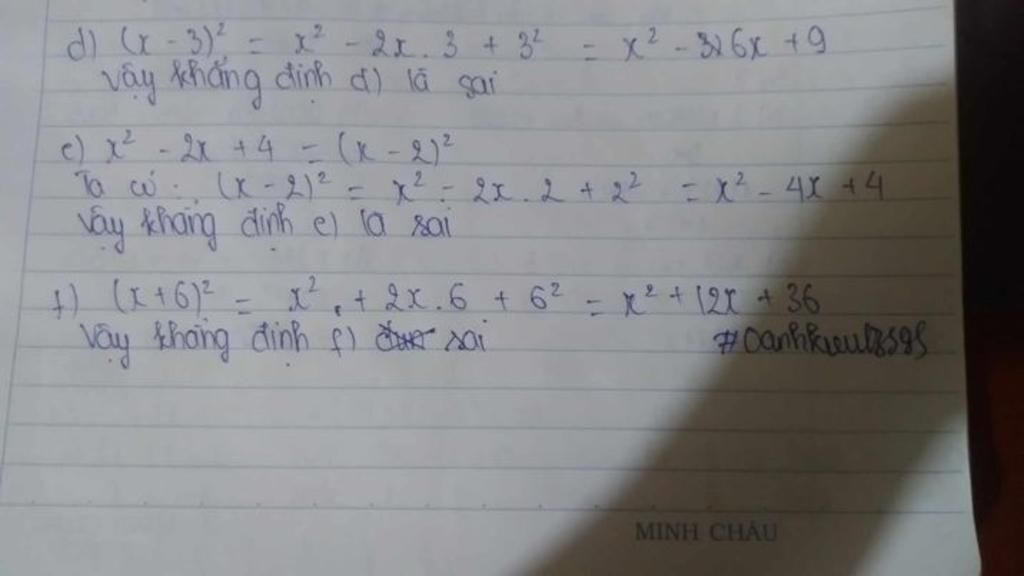 d) (x - 3)² = x² - 2x . 3 + 3² = x² - 6x + 9
Vậy khẳng định d) là sai
e) x² - 2x + 4 = (x - 2)²
Ta có : (x - 2)² = x² - 2x . 2 + 2² = x² - 4x + 4
Vậy khẳng định e) là sai
f) (x + 6)² = x² + 2x . 6 + 6² = x² + 12x + 36
Vậy khẳng định f) sai
MINH CHÂU